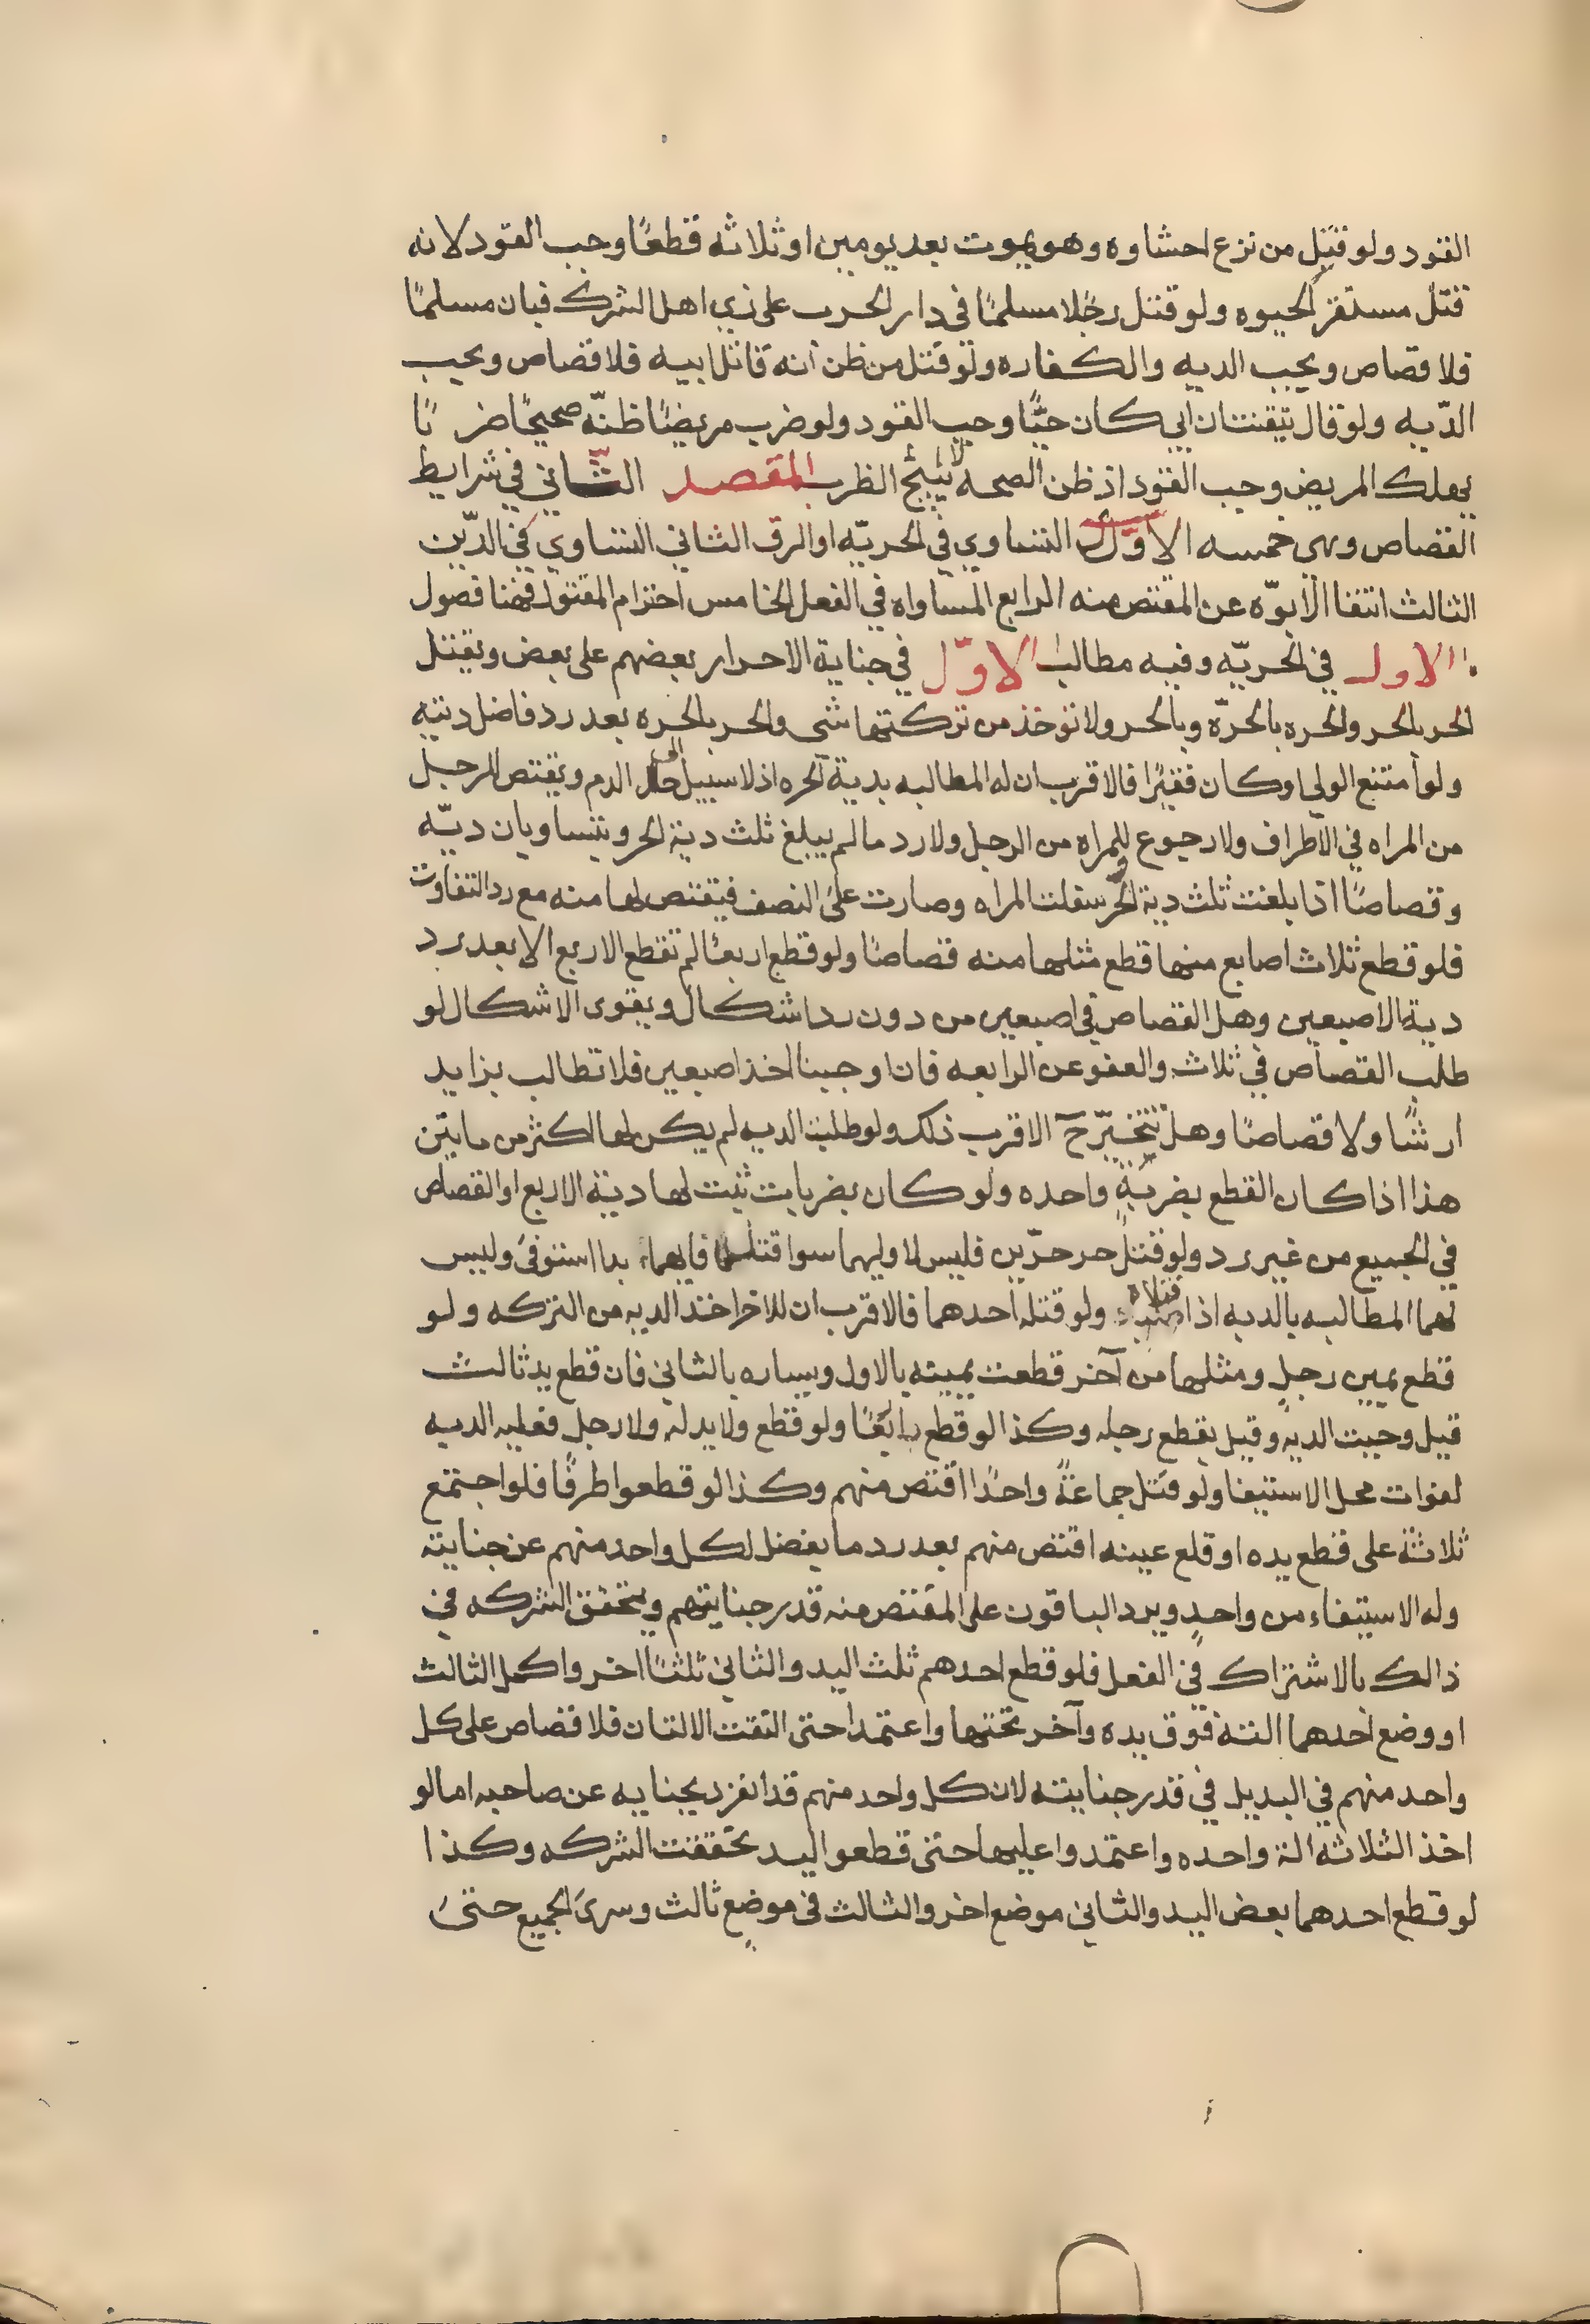 القود ولو قتل من نزع احشاوه وهو يموت بعد يومين او ثلاثه قطعًا وجب القود لانه
قتل مستقر الحيوه ولو قتل رجلا مسلمًا في دار الحرب على زي اهل الشرك فبان مسلمًا
فلا قصاص ويجب الديه والكفاره ولو قتل من ظن انه قاتل ابيه فلا قصاص ويجب
الدّيه ولو قال تيقنت ان ابي كان حيًّا وجب القود ولو ضرب مريضًا ظنّه صحيحًا ضربًا
يهلك المريض وجب القود اذ ظن الصحه لا يبيح الضرب المقصد الثّاني في شرايط
القصاص وهى خمسه الاوّل التساوي في الحريّه او الرق الثاني التساوي في الدّين
الثالث انتفا الابوّه عن المقتص منه الرابع المساواه في الفعل الخامس احترام المقتول فهنا فصول
الاول في الحريّه وفيه مطالب الاوّل في جناية الاحرار بعضهم على بعض ويقتل
الحر بالحر والحره بالحرّه وبالحر ولا توخذ من تركتها شى والحر بالحره بعد رد فاضل ديته
ولو امتنع الولي او كان فقيرًا فالاقرب ان له المطالبه بدية الحره اذ لا سبيل الى طل الدم ويقتص للرجل
من المراه في الاطراف ولا رجوع للمراه من الرجل ولا رد ما لم يبلغ ثلث دية الحر ويتساويان ديّه
وقصاصًا اذا بلغت ثلث دية الحر سفلت المراه وصارت على النصف فيقتص لها منه مع رد التفاوت
فلو قطع ثلاث اصابع منها قطع مثلها منه قصاصًا ولو قطع اربعًا لم تقطع الاربع الا بعد رد
دية الاصبعين وهل القصاص في اصبعين من دون رد اشكال ويقوى الاشكال لو
طلب القصاص في ثلاث والعفو عن الرابعه فان اوجبنا اخذ اصبعين فلا تطالب بزايد
ارشًا ولا قصاصًا وهل تتخيّر ح الاقرب ذلك ولو طلبت الديه لم يكن لها اكثر من مايتين
هذا اذا كان القطع بضربةٍ واحده ولو كان بضربات ثبت لها دية الاربع او القصاص
في الجميع من غير رد ولو قتل حر حرّين فليس لاوليهما سوا قتله فايهما بدا استوفى وليس
لهما المطالبه بالديه اذا قتلاه ولو قتله احدهما فالاقرب ان للاخر اخذ الديه من التركه ولو
قطع يمين رجل ومثلها من آخر قطعت يمينه بالاول ويساره بالثاني فان قطع يد ثالث
قيل وجبت الديه وقيل يقطع رجله وكذا لو قطع رابعًا ولو قطع ولا يد له ولا رجل فعليه الديه
لفوات محل الاستيفا ولو قتل جماعةً واحدًا اقتص منهم وكذا لو قطعوا طرفًا فلو اجتمع
ثلاثة على قطع يده او قلع عينه اقتص منهم بعد رد ما يفضل لكل واحد منهم عن جنايته
وله الاستيفاء من واحدٍ ويرد الباقون على المقتص منه قدر جنايتهم ويتحقق الشركه في
ذالك بالاشتراك في الفعل فلو قطع احدهم ثلث اليد والثاني ثلثًا اخر واكمل الثالث
او وضع احدهما الته فوق يده وآخر تحتها واعتمدا حتى التقت الالتان فلا قصاص على كل
واحد منهم في اليد بل في قدر جنايته لان كل واحد منهم قد انفرد بجنايه عن صاحبه اما لو
اخذ الثلاثه الة واحده واعتمدوا عليها حتى قطعوا اليد تحققت الشركه وكذا
لو قطع احدهما بعض اليد والثاني موضع اخر والثالث في موضع ثالث وسرى الجميع حتى